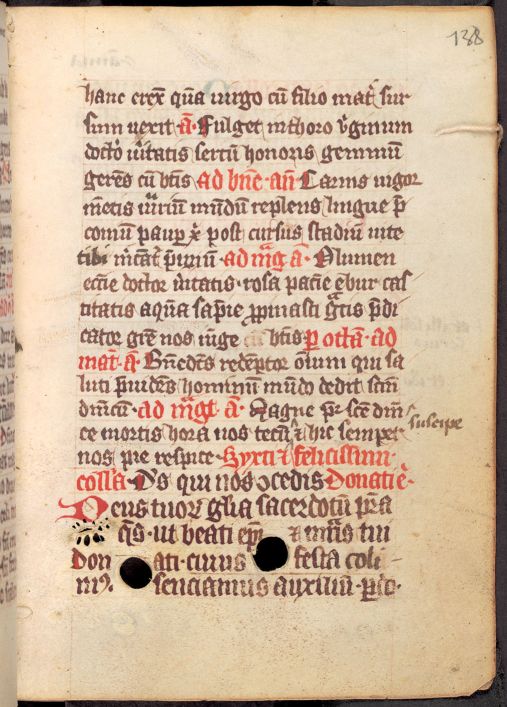 138
hanc crex q̄m uirgo cū filio mat̉ sur
sum uexit · ā · Fulget in thoro v̉ginum
docto᷑ ùitatis sertū honoris geminū
gerēs cū btīs ad bn̄e · an̄ Carnis uigor
m̄etis mūdū replens lingue p̄
comū paup̲ x̄p̄ post cursus stadiū uite
tibi m̉cat᷑ p̄miū · ad m̄g ā · O lumen
eccīe doctor ùitatis · rosa paciē ebur cas
titatis aq̄m sap̄ie p̱pinasti gr̄tis p̄di
cator gr̄e nos iūge cū btīs p̲ octām · ad
mat̄ · ā · Bn̄edc̄s redēptor om̄iū qui sa
luti p̄uidēs hominū mūdo dedit sc̄m
dn̄icū · ad mḡt ā · Magne p̄r sc̄e dn̄i
ce mortis hora nos tecū suscipe & hic semper
nos pie respice · Syxti & felicissimi
coll̄a · Ds̄ qui nos ↄcedis · Donati ep̄i ·
Deus tuor̄ gl̄ia sacerdotū p̄ra
q̄s · ut beati ep̄i & m̄ris tui
Don ati · cuius festa coli
mꝰ · senciamus auxiliū · p̲ d ·